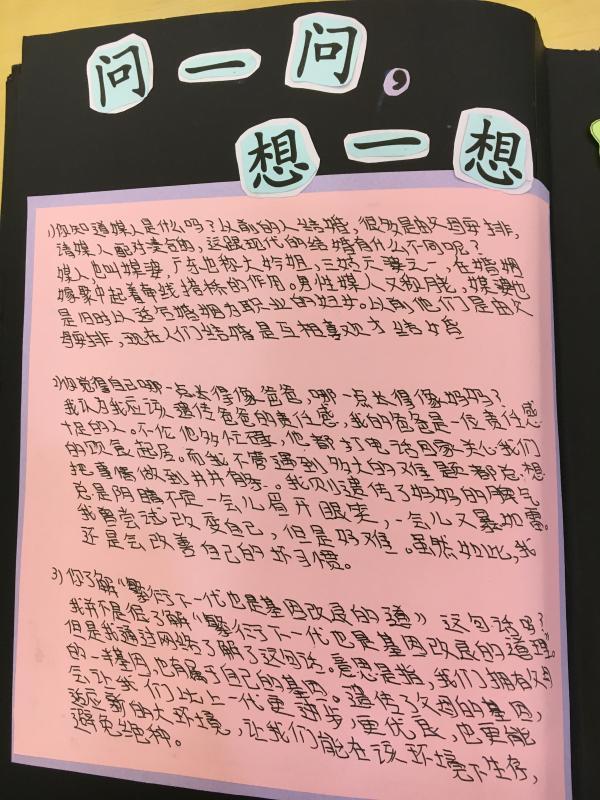 问一问,
想一想
1)你知道媒人是什么吗？以前的人结婚，很多是由父母安排，
请媒人配对凑句的，这跟现代的结婚有什么不同呢？
媒人，也叫媒婆，广东也称大妗姐，三姑六婆之一，在婚姻
嫁娶中起着牵线搭桥的作用。男性媒人又称，媒婆也
是旧时以适合婚姻为职业的妇女。以前他们是由父
母安排，现在人们结婚是互相喜欢才结婚
2)你觉得自己哪一点长得像爸爸，哪一点长得像妈妈？
我认为我应该遗传爸爸的责任感，我的爸爸是一位责任感
十足的人。不论他多忙碌，他都打电话回家关心我们
的饮食起居。而我不管遇到多大的难题都总想
把事情做到井井有条。我则遗传了妈妈的脾气
总是阴晴不定一会儿眉开眼笑，一会儿又暴如雷。
我曾尝试改变自己，但是好难。虽然如此，我
还是会改善自己的坏习惯。
3)你了解《繁衍下一代也是基因改良的道》这句话吗？
我并不是很了解《繁衍下一代也是基因改良的道理。
但是我通过网络了解了这句话。意思是指，我们拥有父母
的一半基因，也有属于自己的基因。遗传了父母的基因，
会让我们比上一代更进步，更优良，也更能
适应新的大环境，让我们能在该环境下生存，
避免绝种。